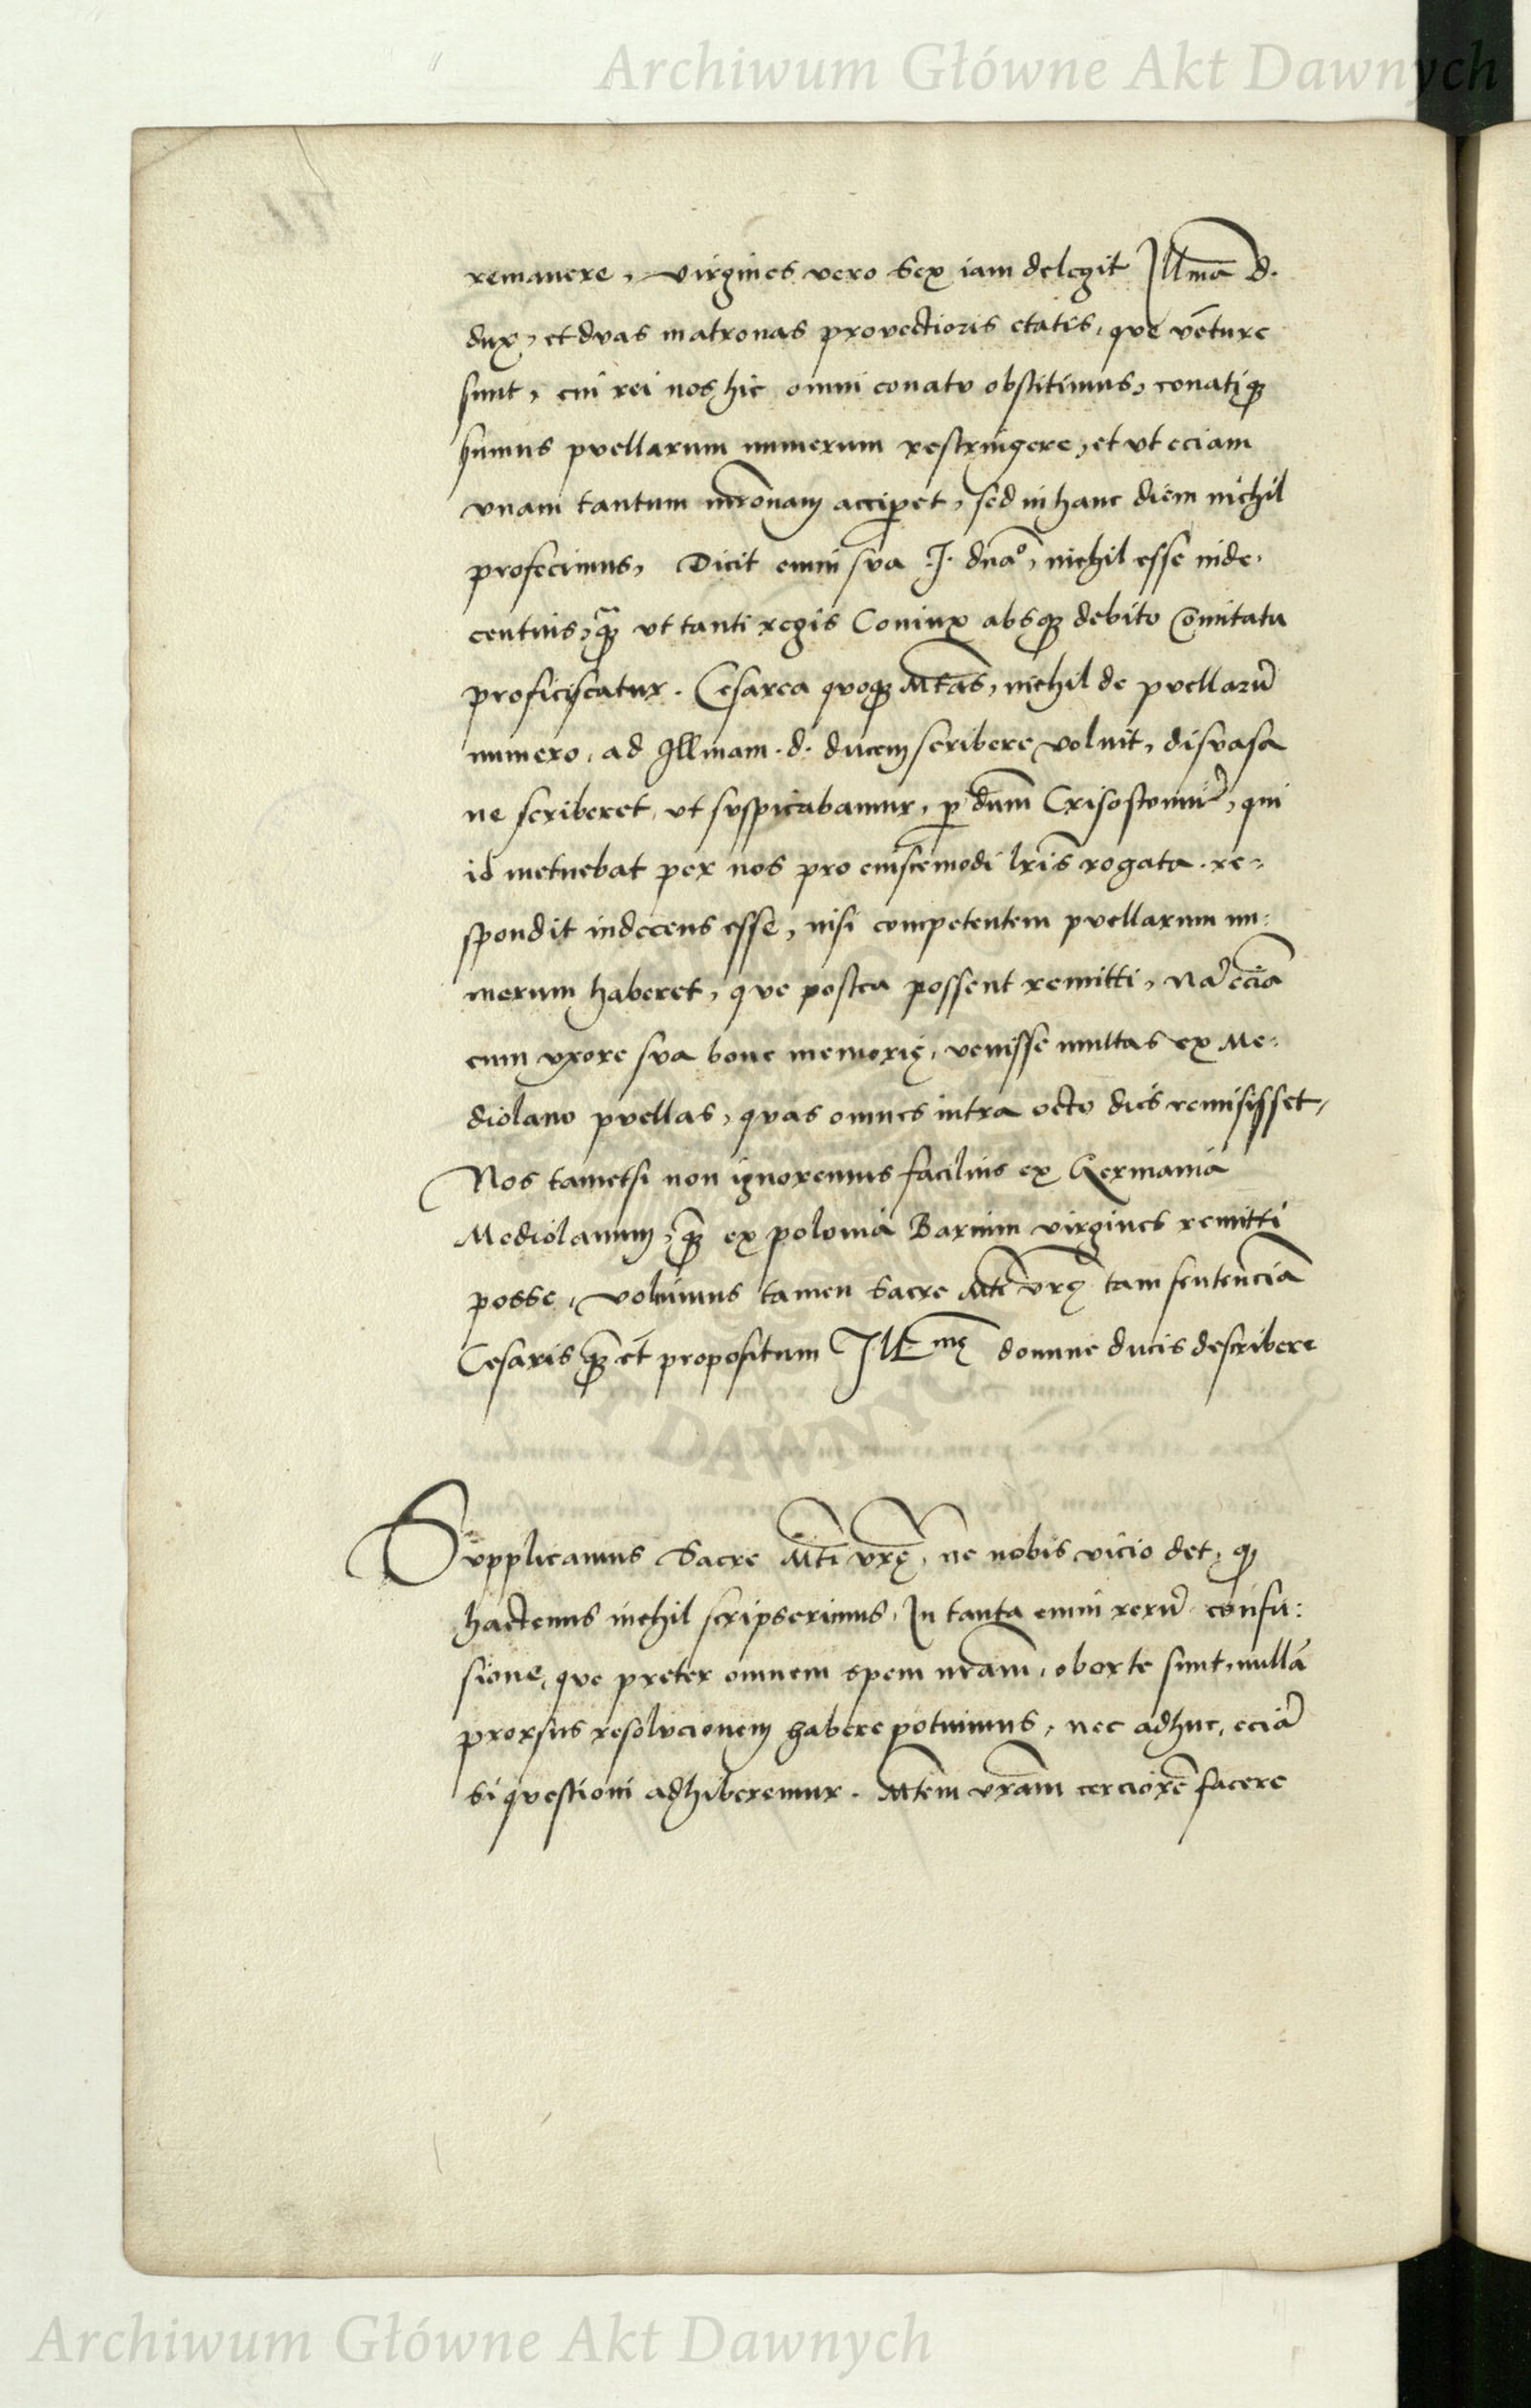 Archiwum Główne Akt Dawnych
remanere, virgines vero sex iam delegit Illma d.
dux, et duas matronas provectioris etatis, que vēture
sunt, cui rei nos hic omni conatu obstitimus, conatiq3
sumus puellarum numerum restringere, et ut eciam
unam tantum mr̄onam acciperet, sed in hanc diem nichil
profecimus, Dicit enim sua I. dnāo, nichil esse inde,
centius, qƷ̄ ut tanti regis Coniux absqƷ debito Comitatu
proficiscatur. Cesarea quoqƷ Mtas, nichil de puellarū
numero, ad Illmam. d. ducem scribere voluit, disuasa
ne scriberet, ut suspicabamur, p dnm Crisostomū, qui
id metuebat per nos pro eiuscemodi lrīs rogata. re-
spondit indecens esse, nisi competentem puellarum nu:
merum haberet, que postea possent remitti, Nā eciā
cum uxore sua bone memorię, venisse multas ex Me:
diolano puellas, quas omnes intra octo dies remisisset,
Nos tametsi non ignoremus facilius ex Germania
Mediolanum, qƷ̄ ex polonia Barium virgines remitti
posse, voluimus tamen Sacre Mti vrę tam sentenciā
Cesaris qƷ̄ et propositum Illmę domine ducis describere
Supplicamus Sacre Mti vrę, ne nobis vicio det, qƷ
hactenus nichil scripserimus, In tanta enim rerū confu:
sione, que preter omnem spem nram, oborte sunt, nullā
prorsus resolucionem habere potuimus, nec adhuc, eciā
si questioni adhiberemur. Mtem vram cerciorē facere
DAWNYCH
Archiwum Główne Akt Dawnych